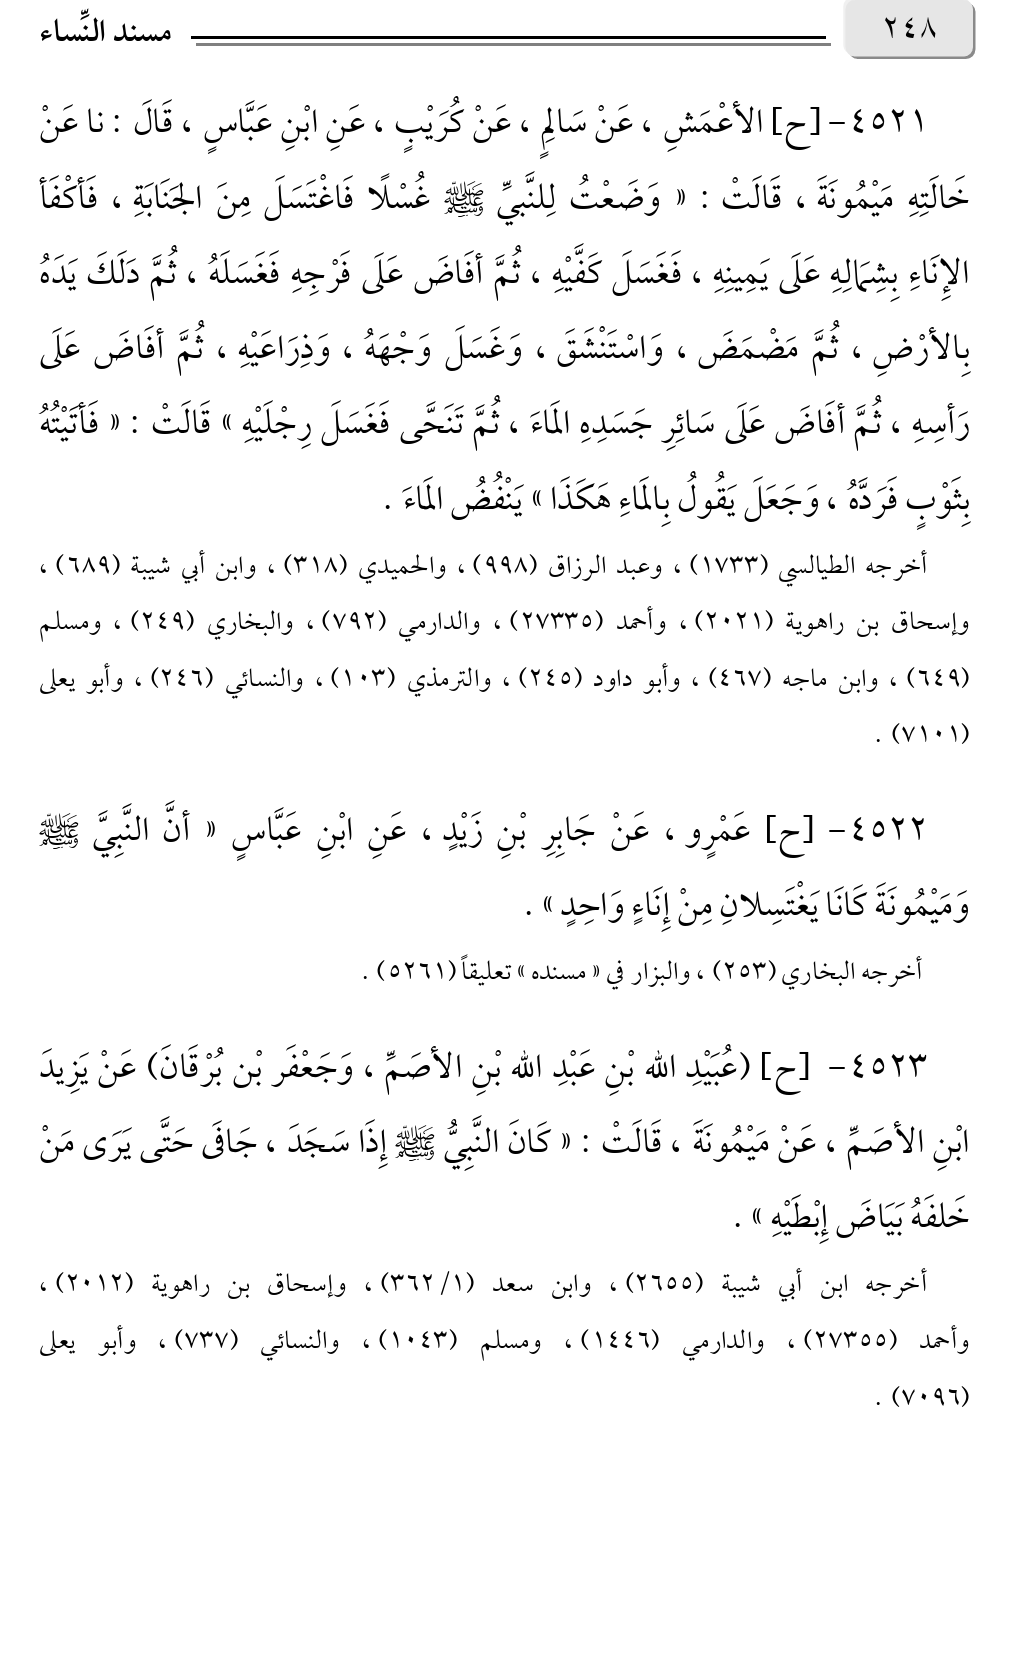 ٢٤٨ مسند النِّساء
٤٥٢١- [ح] الأعْمَشِ ، عَنْ سَالِمٍ ، عَنْ كُرَيْبٍ ، عَنِ ابْنِ عَبَّاسٍ ، قَالَ : نا عَنْ
خَالَتِهِ مَيْمُونَةَ ، قَالَتْ : « وَضَعْتُ لِلنَّبيِّ ﷺ غُسْلًا فَاغْتَسَلَ مِنَ الجَنَابَةِ ، فَأكْفَأ
الإِنَاءِ بِشِمَالِهِ عَلَى يَمِينِهِ ، فَغَسَلَ كَفَّيْهِ ، ثُمَّ أفَاضَ عَلَى فَرْجِهِ فَغَسَلَهُ ، ثُمَّ دَلَكَ يَدَهُ
بِالأرْضِ ، ثُمَّ مَضْمَضَ ، وَاسْتَنْشَقَ ، وَغَسَلَ وَجْهَهُ ، وَذِرَاعَيْهِ ، ثُمَّ أفَاضَ عَلَى
رَأسِهِ ، ثُمَّ أفَاضَ عَلَى سَائِرِ جَسَدِهِ المَاءَ ، ثُمَّ تَنَحَّى فَغَسَلَ رِجْلَيْهِ » قَالَتْ : « فَأتَيْتُهُ
بِثَوْبٍ فَرَدَّهُ ، وَجَعَلَ يَقُولُ بِالمَاءِ هَكَذَا » يَنْفُضُ المَاءَ .
أخرجه الطيالسي (١٧٣٣) ، وعبد الرزاق (٩٩٨) ، والحميدي (٣١٨) ، وابن أبي شيبة (٦٨٩) ،
وإسحاق بن راهوية (٢٠٢١) ، وأحمد (٢٧٣٣٥) ، والدارمي (٧٩٢) ، والبخاري (٢٤٩) ، ومسلم
(٦٤٩) ، وابن ماجه (٤٦٧) ، وأبو داود (٢٤٥) ، والترمذي (١٠٣) ، والنسائي (٢٤٦) ، وأبو يعلى
(٧١٠١) .
٤٥٢٢- [ح] عَمْرٍو ، عَنْ جَابِرِ بْنِ زَيْدٍ ، عَنِ ابْنِ عَبَّاسٍ « أنَّ النَّبِيَّ ﷺ
وَمَيْمُونَةَ كَانَا يَغْتَسِلانِ مِنْ إِنَاءٍ وَاحِدٍ » .
أخرجه البخاري (٢٥٣) ، والبزار في « مسنده » تعليقاً (٥٢٦١) .
٤٥٢٣- [ح] (عُبَيْدِ الله بْنِ عَبْدِ الله بْنِ الأصَمِّ ، وَجَعْفَر بْن بُرْقَانَ) عَنْ يَزِيدَ
ابْنِ الأصَمِّ ، عَنْ مَيْمُونَةَ ، قَالَتْ : « كَانَ النَّبِيُّ ﷺ إِذَا سَجَدَ ، جَافَى حَتَّى يَرَى مَنْ
خَلفَهُ بَيَاضَ إِبْطَيْهِ » .
أخرجه ابن أبي شيبة (٢٦٥٥) ، وابن سعد (١/ ٣٦٢) ، وإسحاق بن راهوية (٢٠١٢) ،
وأحمد (٢٧٣٥٥) ، والدارمي (١٤٤٦) ، ومسلم (١٠٤٣) ، والنسائي (٧٣٧) ، وأبو يعلى
(٧٠٩٦) .